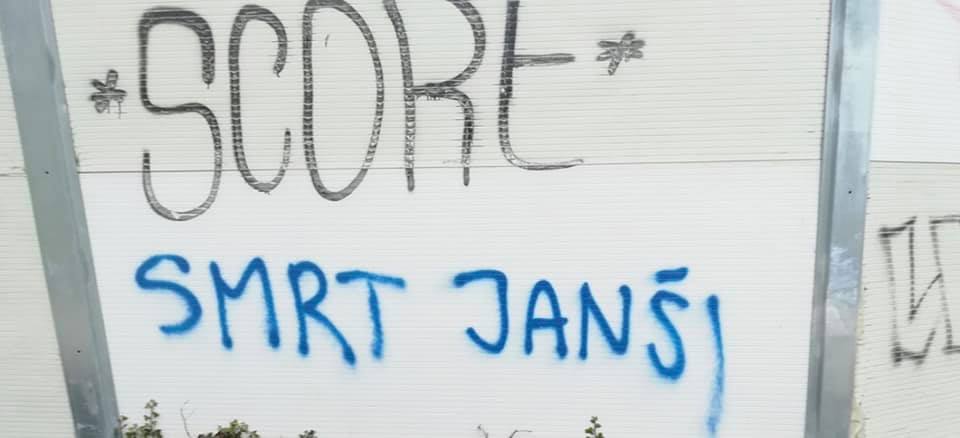 *SCORE*
SMRT JANŠI